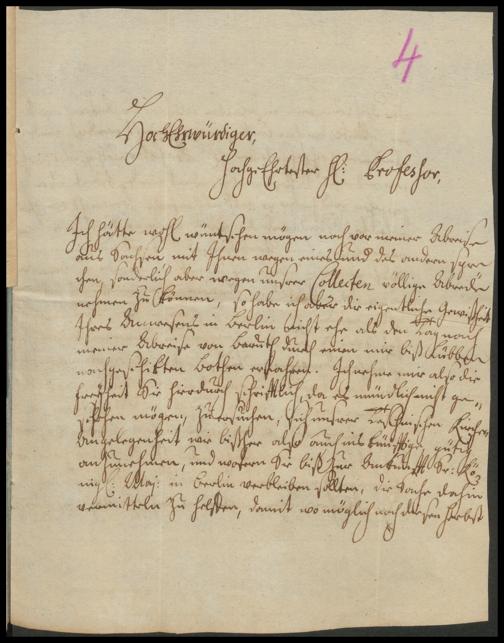 4
HochEhrwürdiger,
HochgeEhrtester H: Professor,
Ich hätte wohl wünschen mögen noch vor meiner Abreise
aus Sachsen mit Ihnen wegen eines und des andern spre-
chen, sonderlich aber wegen unsrer Collecten völlige Abrede
nehmen zu können, so habe ich aber die eigentliche Gewißheit
Ihres Anwesens in Berlin nicht ehe als den Tag nach
meiner Abreise von Baruth durch einen mir biß Lübben
nachgeschikten Bothen erfahren. Ich nehme mir also die
freyheit Sie hierdurch schrifftlich, da es mündlich nicht ge-
schehen mögen, zu ersuchen, sich unsrer Teschnischen Kirchen
Angelegenheit wie bißher also auch ins künfftige gütig
anzunehmen, und wofern Sie biß zur Ankunfft Sr: Kö-
nigl: Maj: in Berlin verbleiben sollten, die Sache dahin
vermitteln zu helffen, damit wo möglich noch diesen Herbst